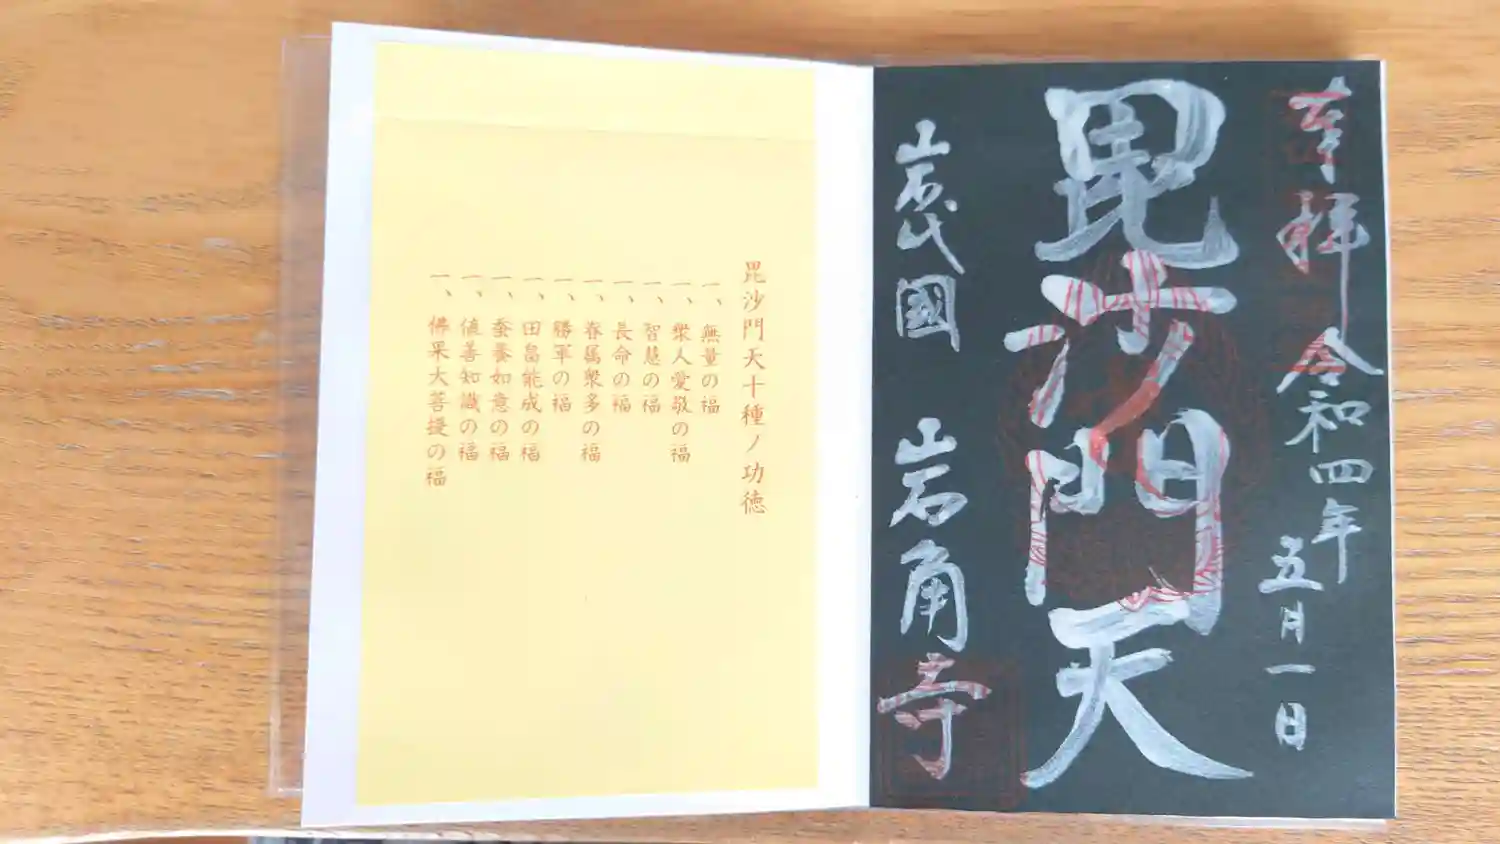 奉拝
令和四年
五月一日
毘沙門天
岩代國
岩角寺
毘沙門天十種ノ功徳
一、無量の福
一、衆人愛敬の福
一、智慧の福
一、長命の福
一、眷属衆多の福
一、勝軍の福
一、田畠能成の福
一、蚕養如意の福
一、値善知識の福
一、佛果大菩提の福